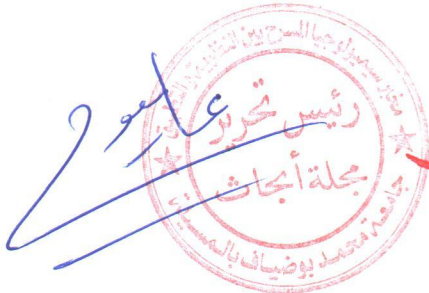 مخبر سيميولوجيا المسرح بين النظرية والتطبيق
رئيس تحرير
مجلة أبحاث
جامعة محمد بوضياف بالمسيلة